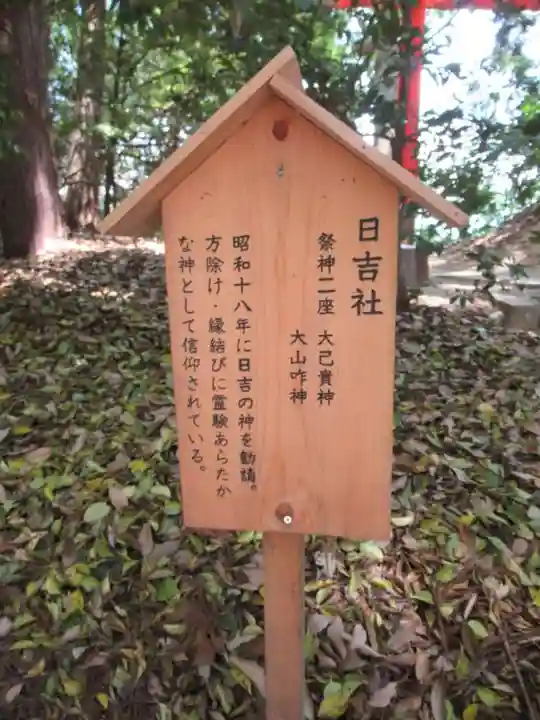 日吉社
祭神二座 大己貴神
大山咋神
昭和十八年に日吉の神を勧請。
方除け・縁結びに霊験あらたか
な神として信仰されている。